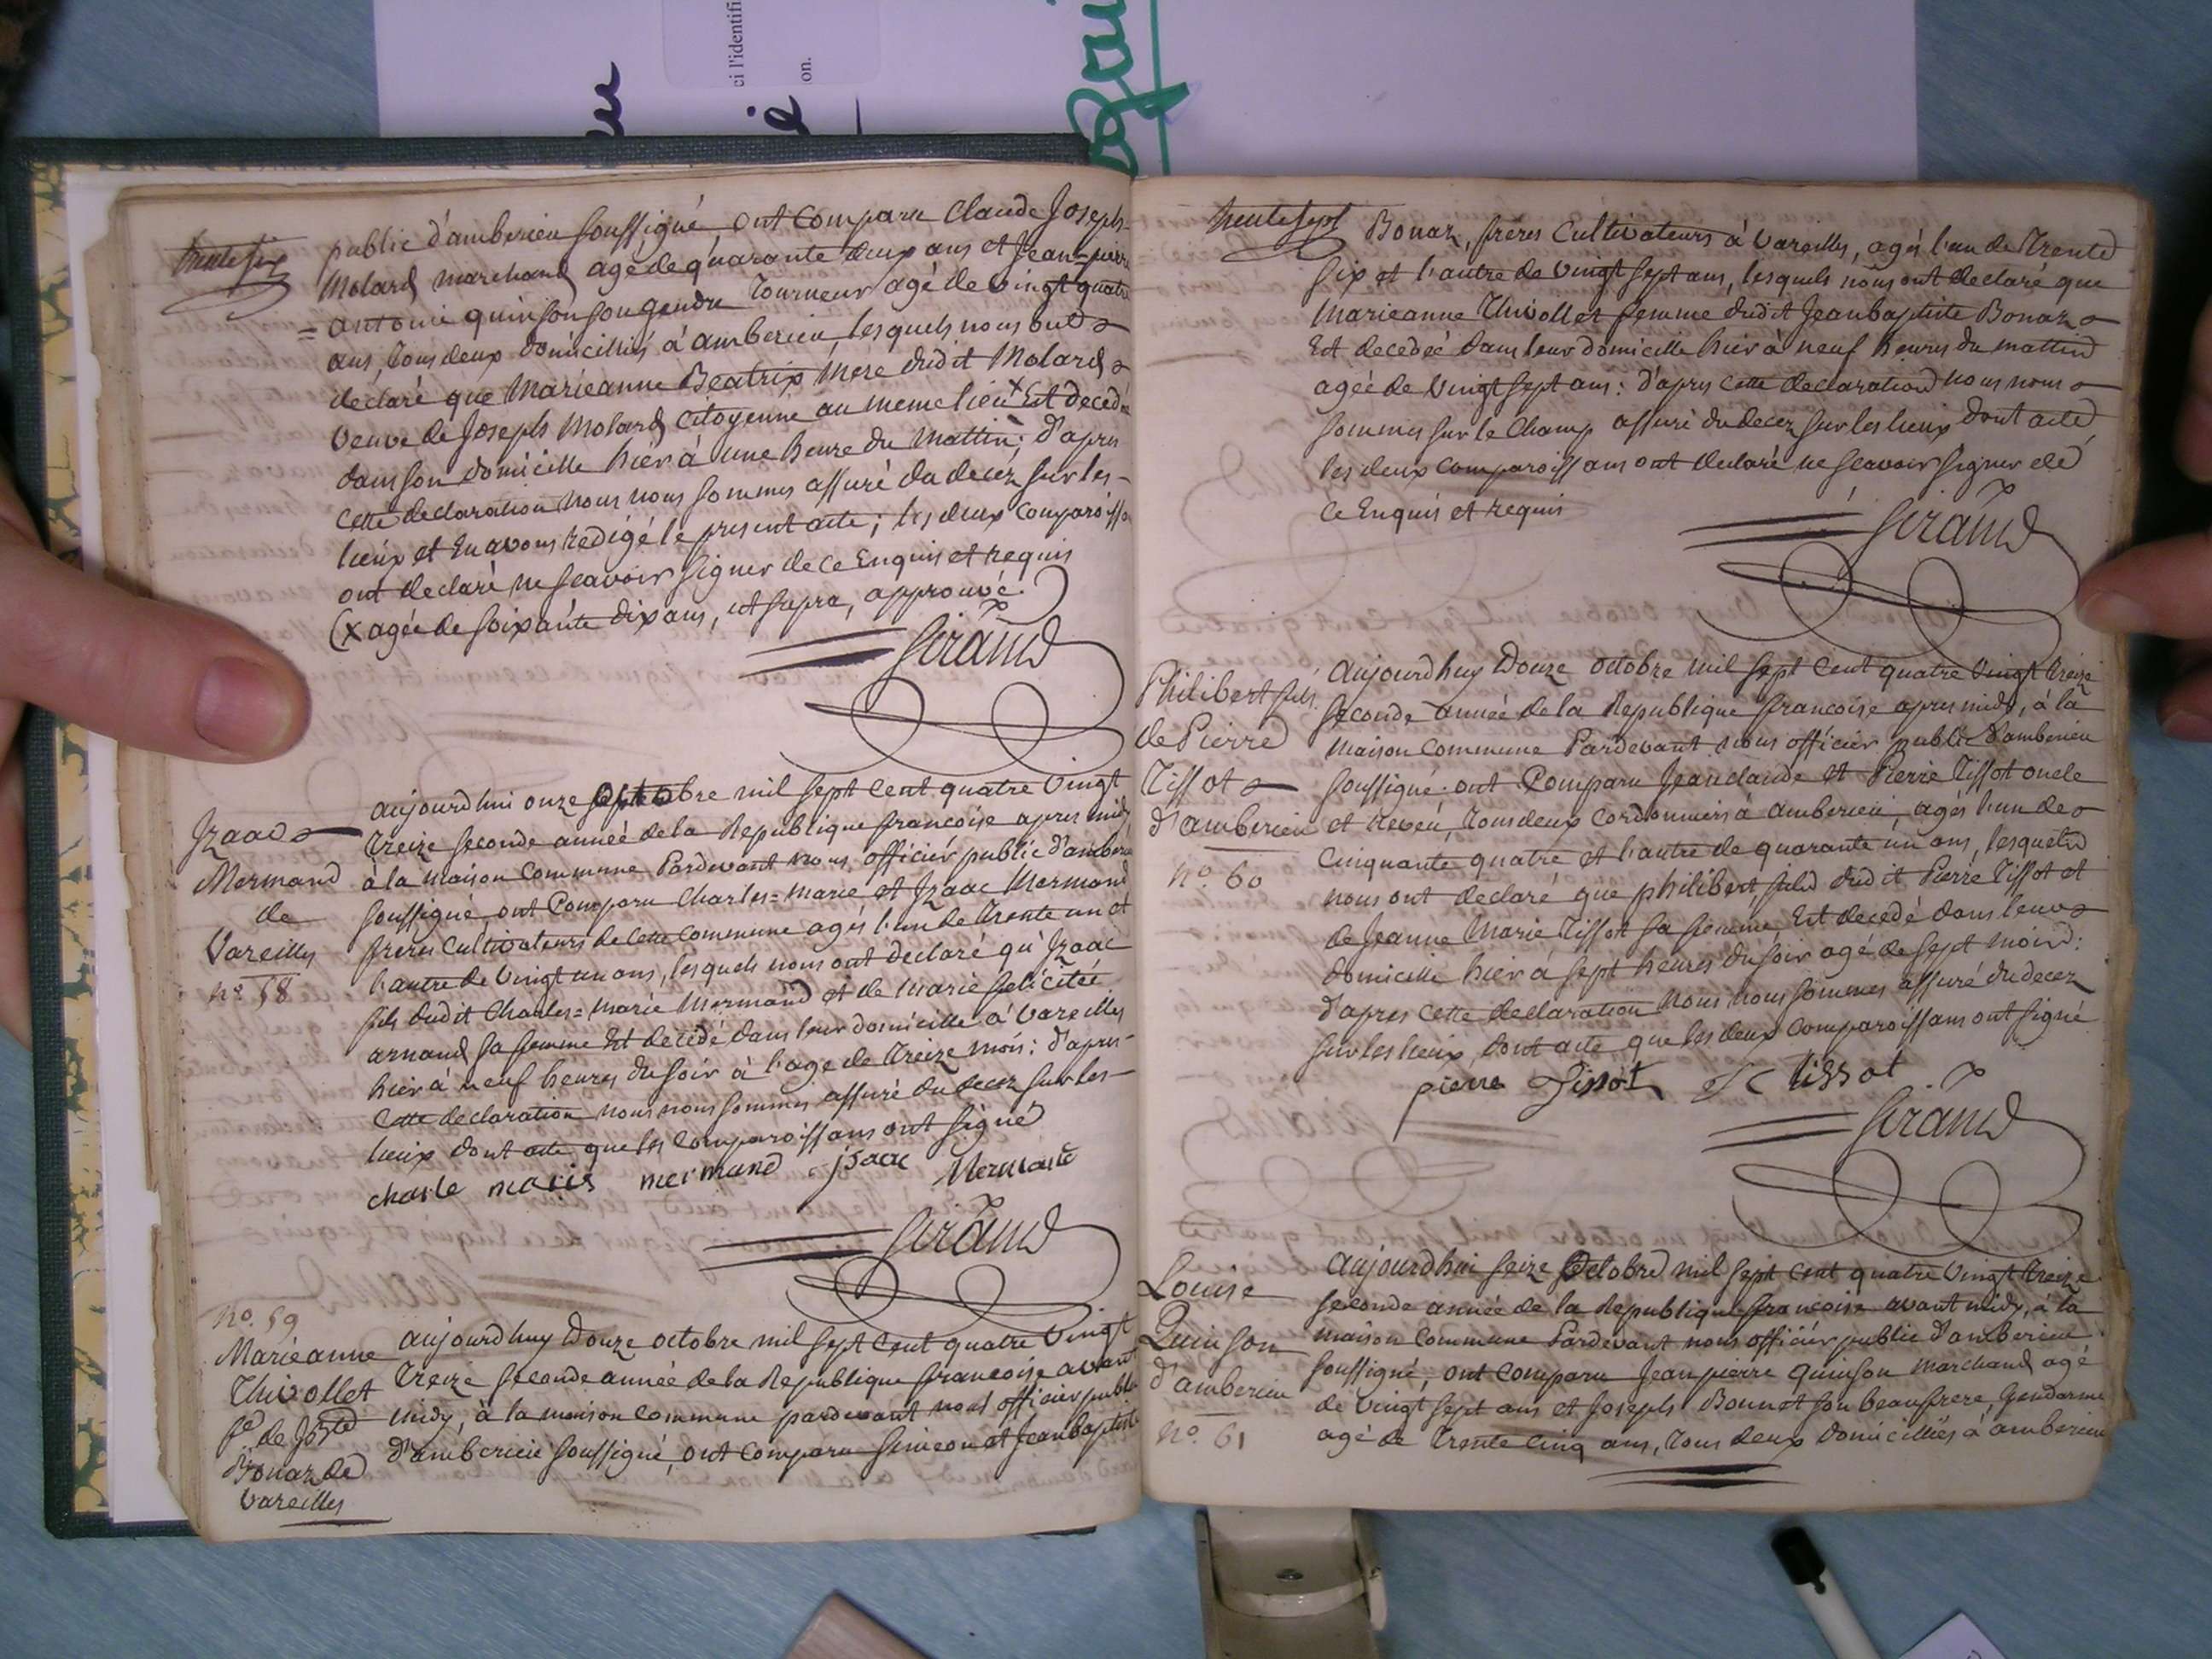 ci l'identifi
on.
trente six
public d'amberieu soussigné, ont comparu Claude Joseph-
Molard marchand agé de quarante deux ans et Jean=pierre
= antoine quinson son gendre Tourneur agé de vingt quatre
ans, tous deux domicilliés à amberieu, lesquels nous ont
declaré que Marieanne Beatrix Mere dudit Molard
veuve de Joseph Molard Citoyenne au meme lieu x Est decedée
dans son domicille hier à une heure du mattin: d'apres
cette declaration nous nous sommes assuré du decez sur les-
lieux et En avons redigé le present acte; les deux comparoissa
ont declaré ne scavoir signer de ce Enquis et requis
(x agée de soixante dix ans, ut supra, approuvé.
Giraud
Izaac
Mermand
de
Vareilles
no. 58
aujourd'hui onze octobre mil sept cent quatre vingt
treize seconde année de la Republique francoise apres midy
à la maison Commune Pardevant nous officier public d'amberieu
soussigné, ont Comparu Charles=marie et Izaac Mermand
freres Cultivateurs de cette Commune agés l'un de trente un et
l'autre de vingt un ans, lesquels nous ont declaré qu'Izaac
fils dudit Charles=Marie Mermand et de Marie felicitée
arnaud sa femme Est decedé dans leur domicille à Vareilles
hier à neuf heures du soir à l'age de treize mois: d'apres-
Cette declaration nous nous sommes assuré du decez sur les-
lieux dont acte que les Comparoissans ont signé
charle marie mermand isaac Mermand
Giraud
no. 59
Marieanne
Thivollet
fe. de Jn Bte
Bonaz de
Vareilles
aujourd'huy Douze octobre mil sept Cent quatre Vingt
Treize seconde année de la Republique francoise avant
midy, à la maison Commune pardevant nous officier public
d'amberieu soussigné, ont comparu Simeon et Jeanbaptiste
trente sept
Bonaz, freres Cultivateurs à Vareilles, agés l'un de Trente
six et l'autre de vingt sept ans, lesquels nous ont declaré que
Marieanne Thivollet femme dudit Jeanbaptiste Bonaz
Est decedée dans leur domicille hier à neuf heures du mattin
agée de vingt sept ans: d'apres cette declaration nous nous
sommes sur le Champ assuré du decez sur les lieux Dont acte
les deux comparoissans ont declaré ne scavoir signer de
ce Enquis et requis
Giraud
Philibert fils
de Pierre
Tissot
d'amberieu
no. 60
Aujourd'huy Douze octobre mil sept Cent quatre Vingt treize
seconde année de la Republique francoise apres midy, à la
maison Commune Pardevant nous officier public d'amberieu
soussigné ont Comparu Jeanclaude et Pierre Tissot oncle
et Neveu, tous deux Cordonniers à amberieu, agés l'un de
Cinquante quatre et l'autre de quarante un ans, lesquels
nous ont declaré que philibert, fils dudit Pierre Tissot et
de Jeanne Marie Tissot sa femme, Est decedé dans leur
domicille hier à sept heures du soir agé de sept mois:
d'apres Cette declaration nous nous sommes assuré du decez
sur les lieux, dont acte que les deux Comparoissans ont signé
pierre Tissot JC tissot
Giraud
Louise
Quinson
d'amberieu
no. 61
Aujourd'hui seize Octobre mil sept cent quatre vingt treize
seconde année de la Republique francoise avant midy, à la
maison Commune Pardevant nous officier public d'amberieu
soussigné, ont comparu Jean pierre Quinson marchand agé
de vingt sept ans et Joseph Bonnet son beaufrere, Gendarme
agé de Trente Cinq ans, tous deux domicilliés à amberieu